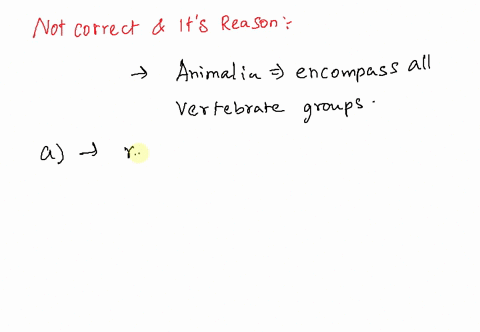 Not correct & It's Reason:-
→ Animalia ⇒ encompass all
vertebrate groups.
a) → r..